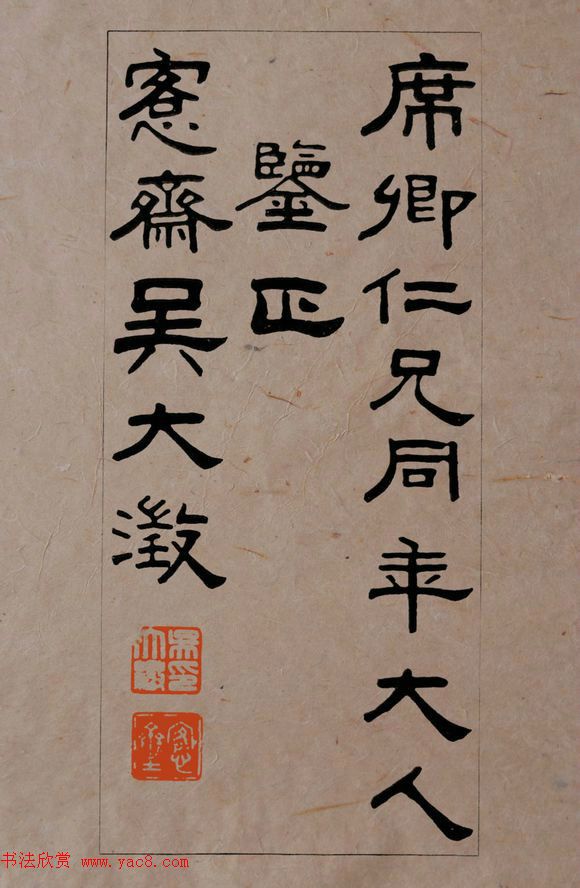 席卿仁兄同年大人
鑒正
愙齋吳大澂
吳大澂印
愙齋
书法欣赏 www.yac8.com